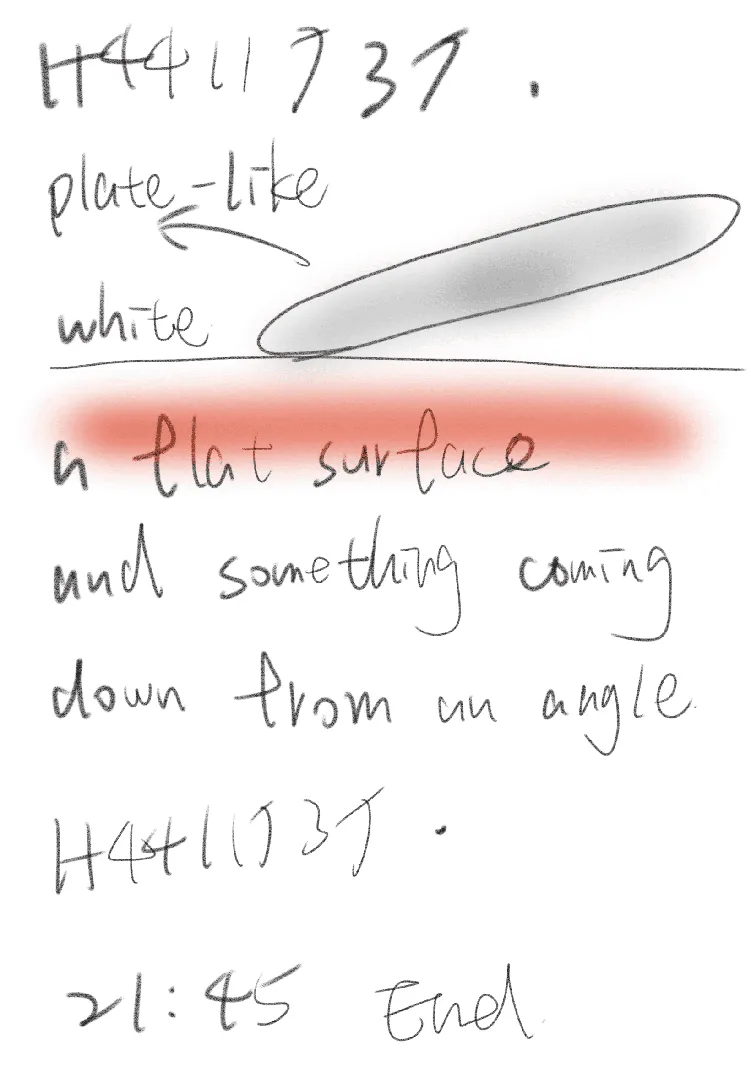 H4411737.
plate-like
white
a flat surface
and something coming
down from an angle.
H4411737.
21:45 End.